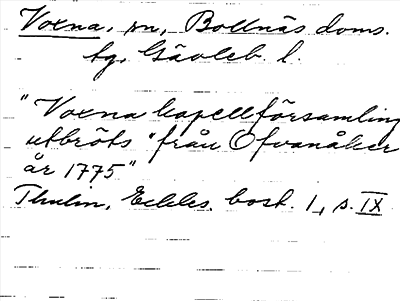 Voxna, sn, Bollnäs doms.
tg, Gävleb. l.
"Voxna kapellförsamling
utbröts "från Ofvanåker
år 1775"
Thulin, Eckles. bost. 1, s. IX